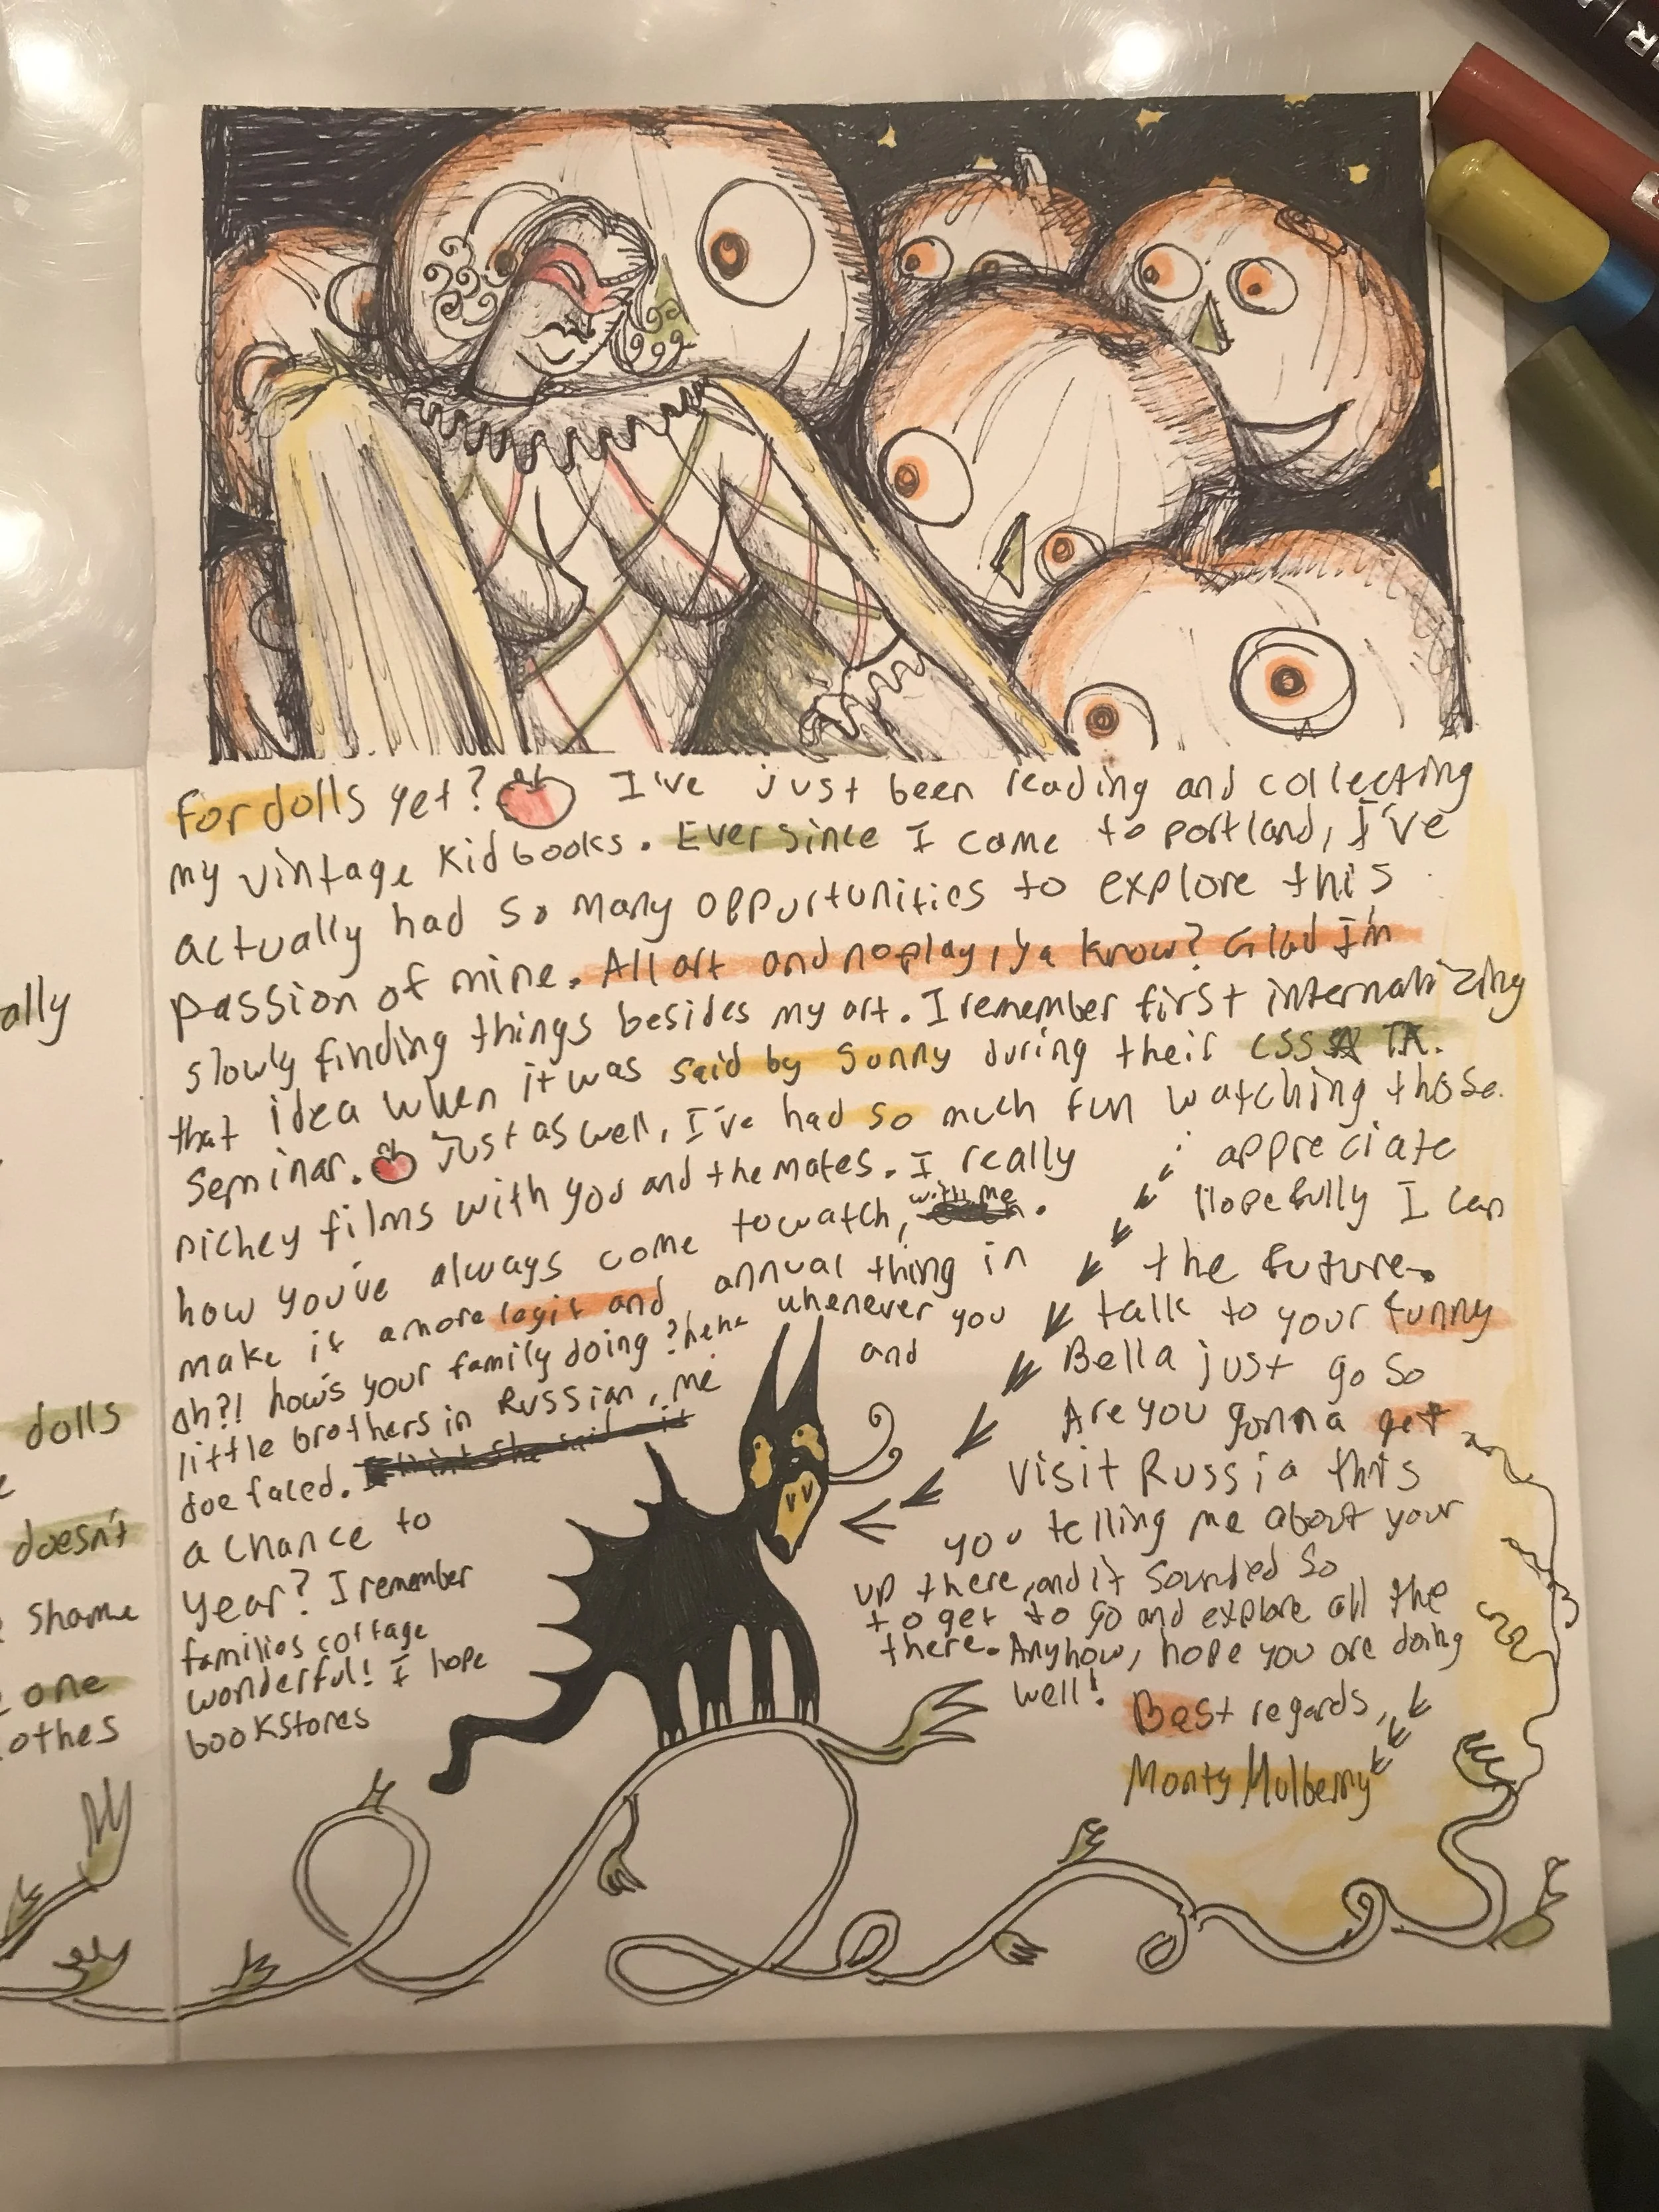 ally
dolls
doesn't
shame
one
othes
for dolls yet? I've just been reading and collecting
my vintage kid books. Ever since I came to portland, I've
actually had so many oppurtunities to explore this
passion of mine. All art and no play, ya know? Glad I'm
slowly finding things besides my art. I remember first internalizing
that idea when it was said by Sunny during their CSSA TA.
seminar. Just as well, I've had so much fun watching those
nichey films with you and the mates. I really appreciate
how you've always come to watch, with me. Hopefully I can
make it a more legit and annual thing in the future.
Oh?! how's your family doing? hehe whenever you talk to your funny
little brothers in Russian, me and Bella just go so
doe faced. Are you gonna get
a chance to visit Russia this
year? I remember you telling me about your
families cottage up there, and it sounded so
wonderful! I hope to get to go and explore all the
bookstores there. Anyhow, hope you are doing
well!
Best regards,
Monty Mulberry